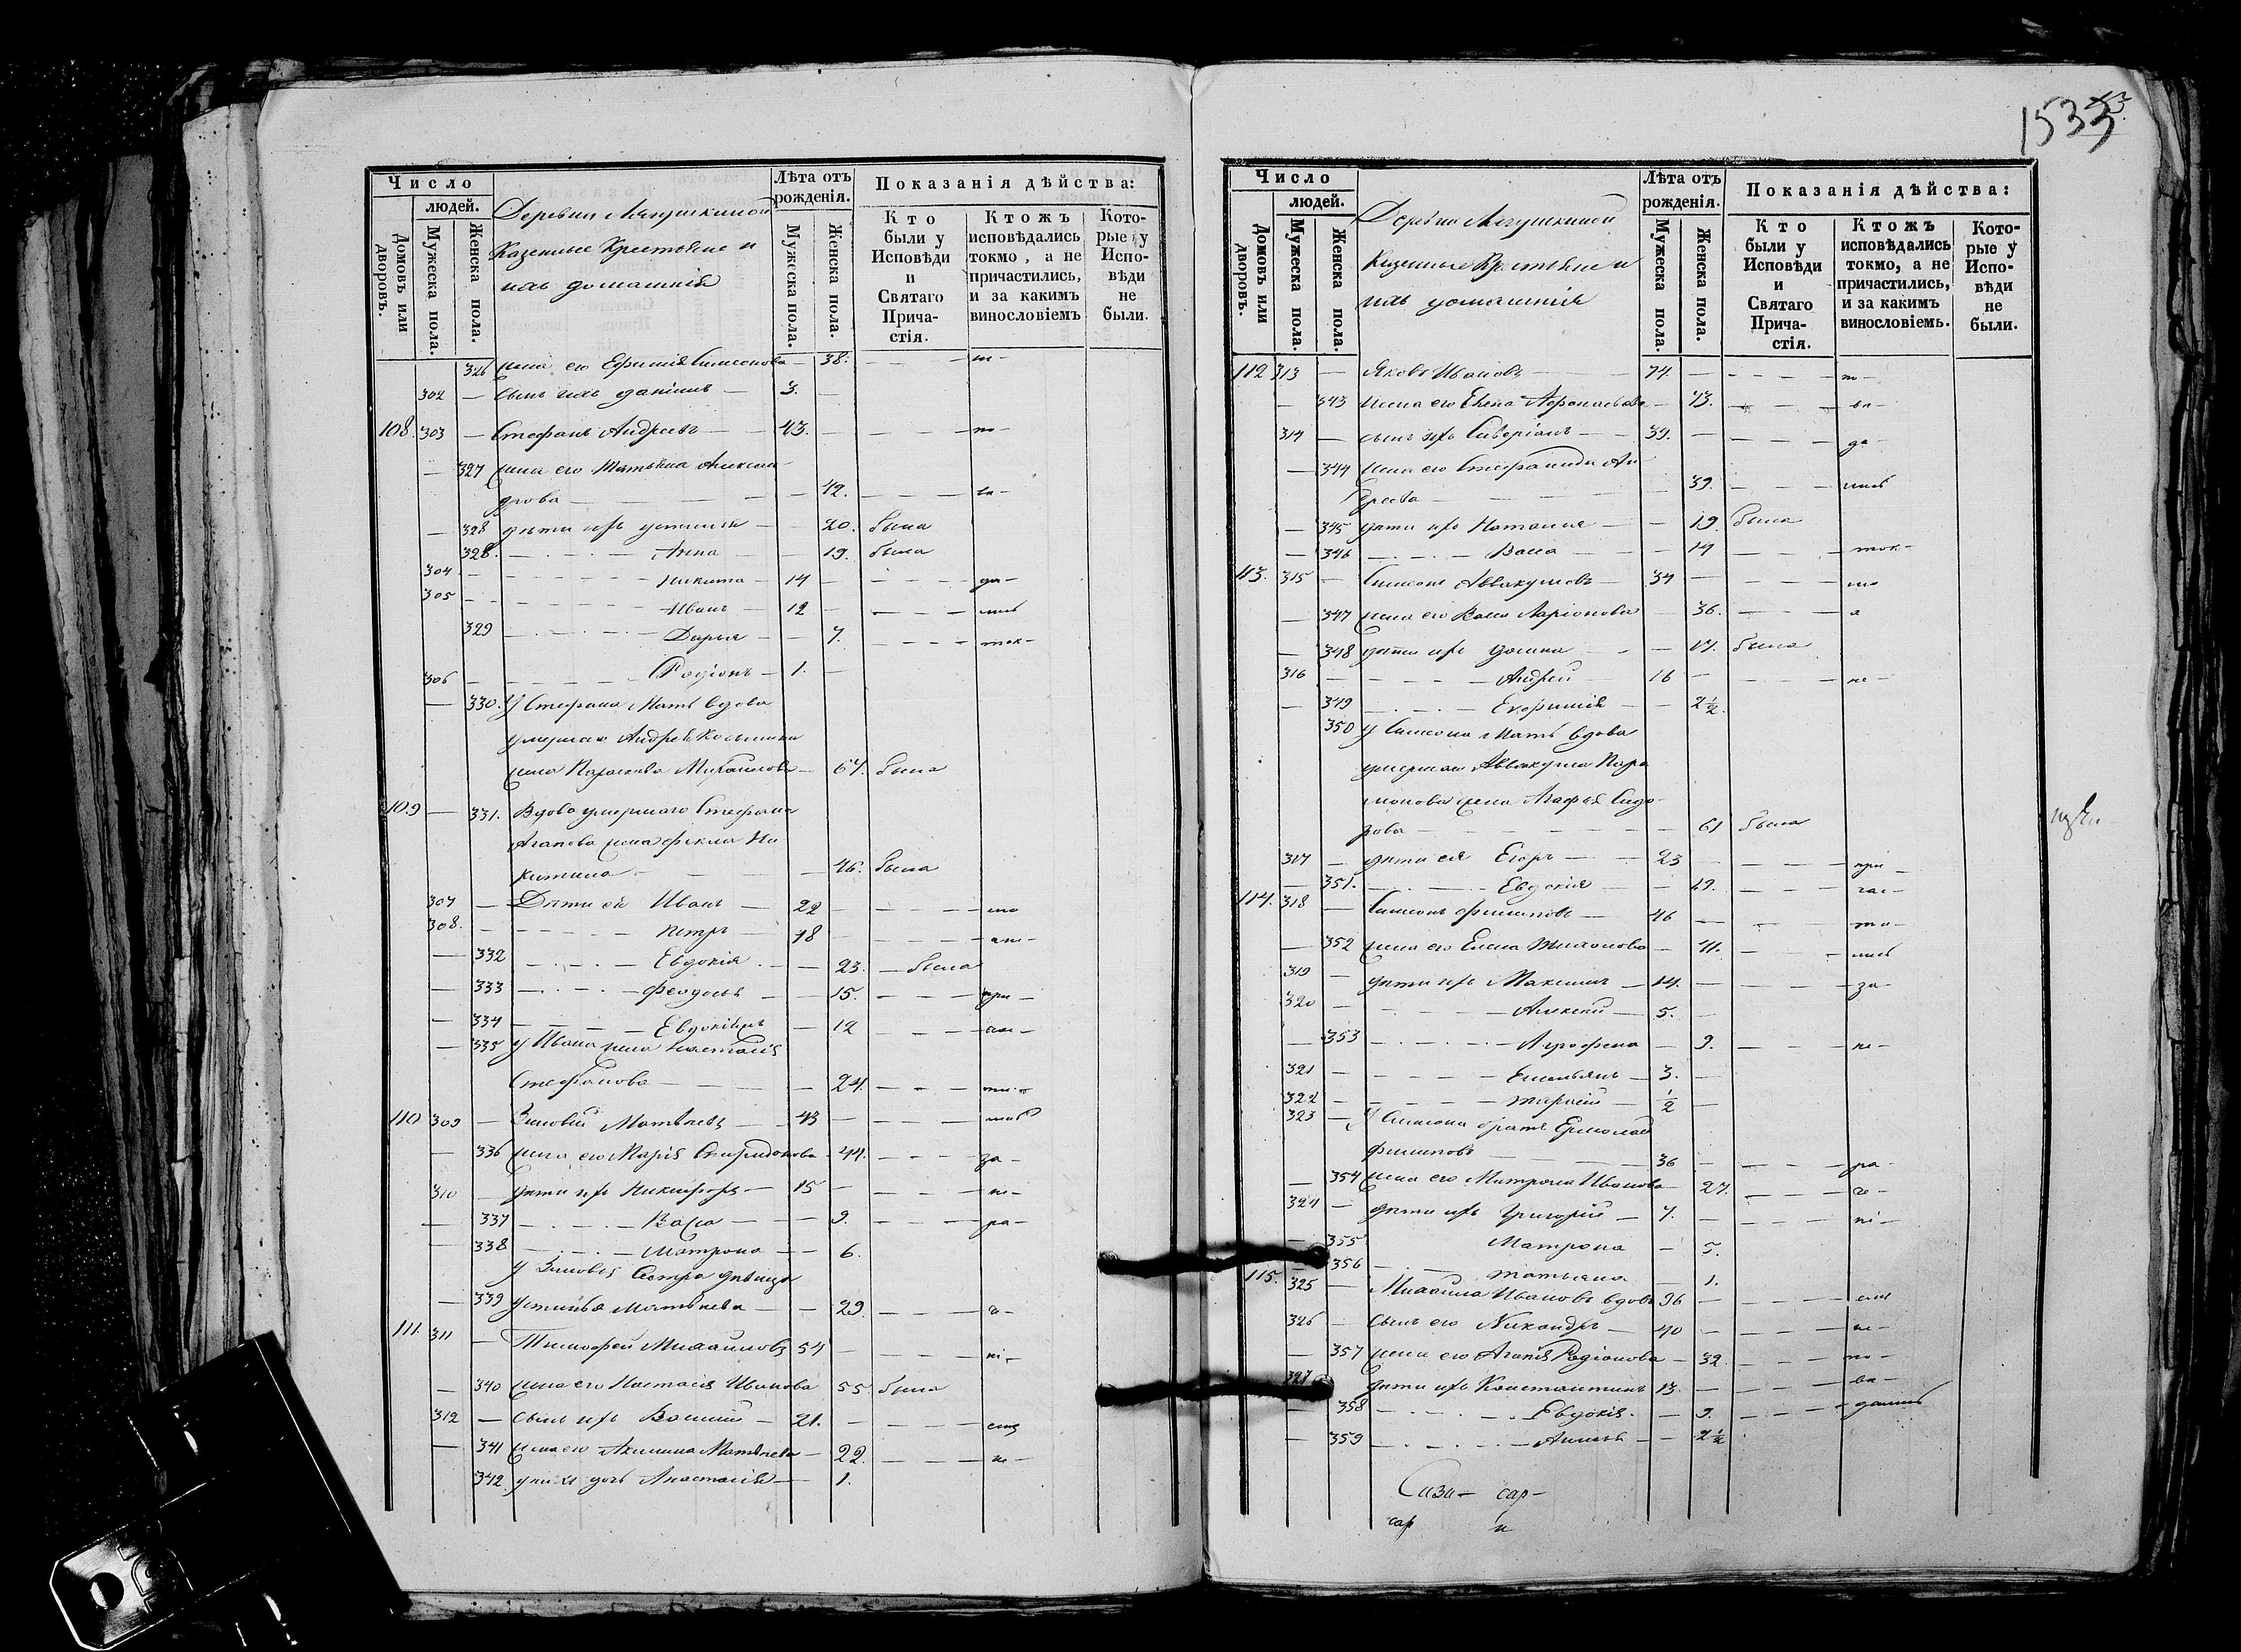 1533
Число
людей.
Домовъ или дворовъ.
Мужеска пола.
Женска пола.
Деревни Лягушкиной
Казенные Крестьяне и
ихъ домашнія
Лѣта отъ рожденія.
Мужеска пола.
Женска пола.
Показанія дѣйства:
Кто были у Исповѣди и Святаго Прича-стія.
Ктожъ исповѣдались токмо, а не причастились, и за какимъ винословіемъ
Кото-рые у Испо-вѣди не были.
326 жена его Ефимія Симеонова — 38. — — т —
302 — сынъ ихъ Даніилъ — 3. —
108. 303 — Стефанъ Андреевъ — — 43. — — — — по —
— 327 жена его Татьяна Алексан
дрова — — — — — 42. — — — ва —
— 328 дѣти ихъ — — 20. была
328. — . — . — Анна — — 19. была
304 — — — — — Никита — 14 — — — — да —
305 — — — — — Иванъ — 12 — — — — лись
329 — . — . — Дарья — — 7. — — — — ток —
306 — — — — — Родіонъ — 1. —
— 330. У Стефана мать вдова
умершаго Андрея
жена Параскева Михайлова — 67. была
109 — 331. Вдова умершаго Стефана
Агапова жена Фекла Ни
китина — — — — 46. была
307 — Дѣти ея Иванъ — 22 — — — — мо
308. — — — — — Петръ — 18 — — — —
— 332 — . — . — Евдокія — — 23. — была
— 333 — . — . — Феодосья — — 15. — — — при —
— 334 — — — — Евдокія — 12 — — — час —
— 335 У Ивана жена Настасія
Стефанова — — — — 24. — — — ти —
110 309 — Зиновій Матвѣевъ — — 43 — — — лись
— 336 жена его Марія Спиридонова — 44. — — — за —
310 — дѣти ихъ Никифоръ — 15 — — — — не —
— 337 — . — . — Васса — — 9. — — — ра —
— 338 — . — . — Матрона — — 6.
У Зиновія сестра дѣвица
— 339 Устинья Матвѣева — — 29. — — — че —
111. 311 — Тимофей Михайловъ 54 — — — — ні —
— 340 жена его Настасія Иванова 55. была
312 — сынъ ихъ Василій — 21. — — — — емъ
— 341 жена его Акилина Матвѣева — 22. — — — не —
342 у нихъ дочь Анастасія — — 1.
Число
людей.
Домовъ или дворовъ.
Мужеска пола.
Женска пола.
Деревни Лягушкиной
Казенные Крестьяне и
ихъ домашнія
Лѣта отъ рожденія.
Мужеска пола.
Женска пола.
Показанія дѣйства:
Кто были у Исповѣди и Святаго Прича-стія.
Ктожъ исповѣдались токмо, а не причастились, и за какимъ винословіемъ.
Кото-рые у Испо-вѣди не были.
112 313 — Яковъ Ивановъ — — 74. — — — — по —
— 343 жена его Елена Афонасьева — 73. — — — вѣ —
314 — сынъ ихъ Сиверіанъ — — 39. — — — — да —
— 344 жена его Стефанида Ан
дреева — — — — 39. — — — лись
— 345 дѣти ихъ Наталия — — 19. была
— 346 — . — . — Васса — — 14 — — — ток —
113. 315 — Симеонъ Аввакумовъ — 34 — — — мо
— 347 жена его Васса Ларіонова — 36. — — — а
— 348 дѣти ихъ — — 17. была
316 — — — — — Андрей — 16 — — — — не —
— 349 — . — . — Евфимія — — 2 1/2.
350 У Симеона мать вдова
умершаго Аввакума Пара
монова жена Агафья Сидо-
рова — — — — — 61 была
317 — дѣти ея Егоръ — — 23 — — — — при —
— 351. — . — . — Евдокія — — 19. — — — час —
114. 318 — Симеонъ Филиповъ — 46 — — — ти —
— 352 жена его Елена Тихонова — 41. — — — лись
319 — дѣти ихъ Максимъ — 14. — — — — за —
320 — — — — — Алексѣй — 5. —
— 353 — . — . — Агрофена — 9. — — — не —
321 — — — — — Емельянъ — 3. —
322 — — — — — Тарасій — 1/2 —
323 — У Симеона братъ Ермолай
Филиповъ — — — — 36 — — — — ра —
— 354 жена его Матрона Иванова — 27. — — — че —
324 — дѣти ихъ Григорій — 7. — — — — ні —
— 355 Матрона — 5.
— 356 — . — Татьяна — 1.
115. 325 — Михаила Ивановъ вдовъ 96 — — — — емъ
326 — сынъ его Никандръ — 40 — — — — не —
— 357 жена его Агапія Родіонова — 32. — — — по —
327 дѣти ихъ Константинъ 13. — — — — вѣ —
— 358 — . — . — Евдокія. — 9. — — — дались
— 359 — . — . — — — 2 1/2
Сизи — сар —
сар и